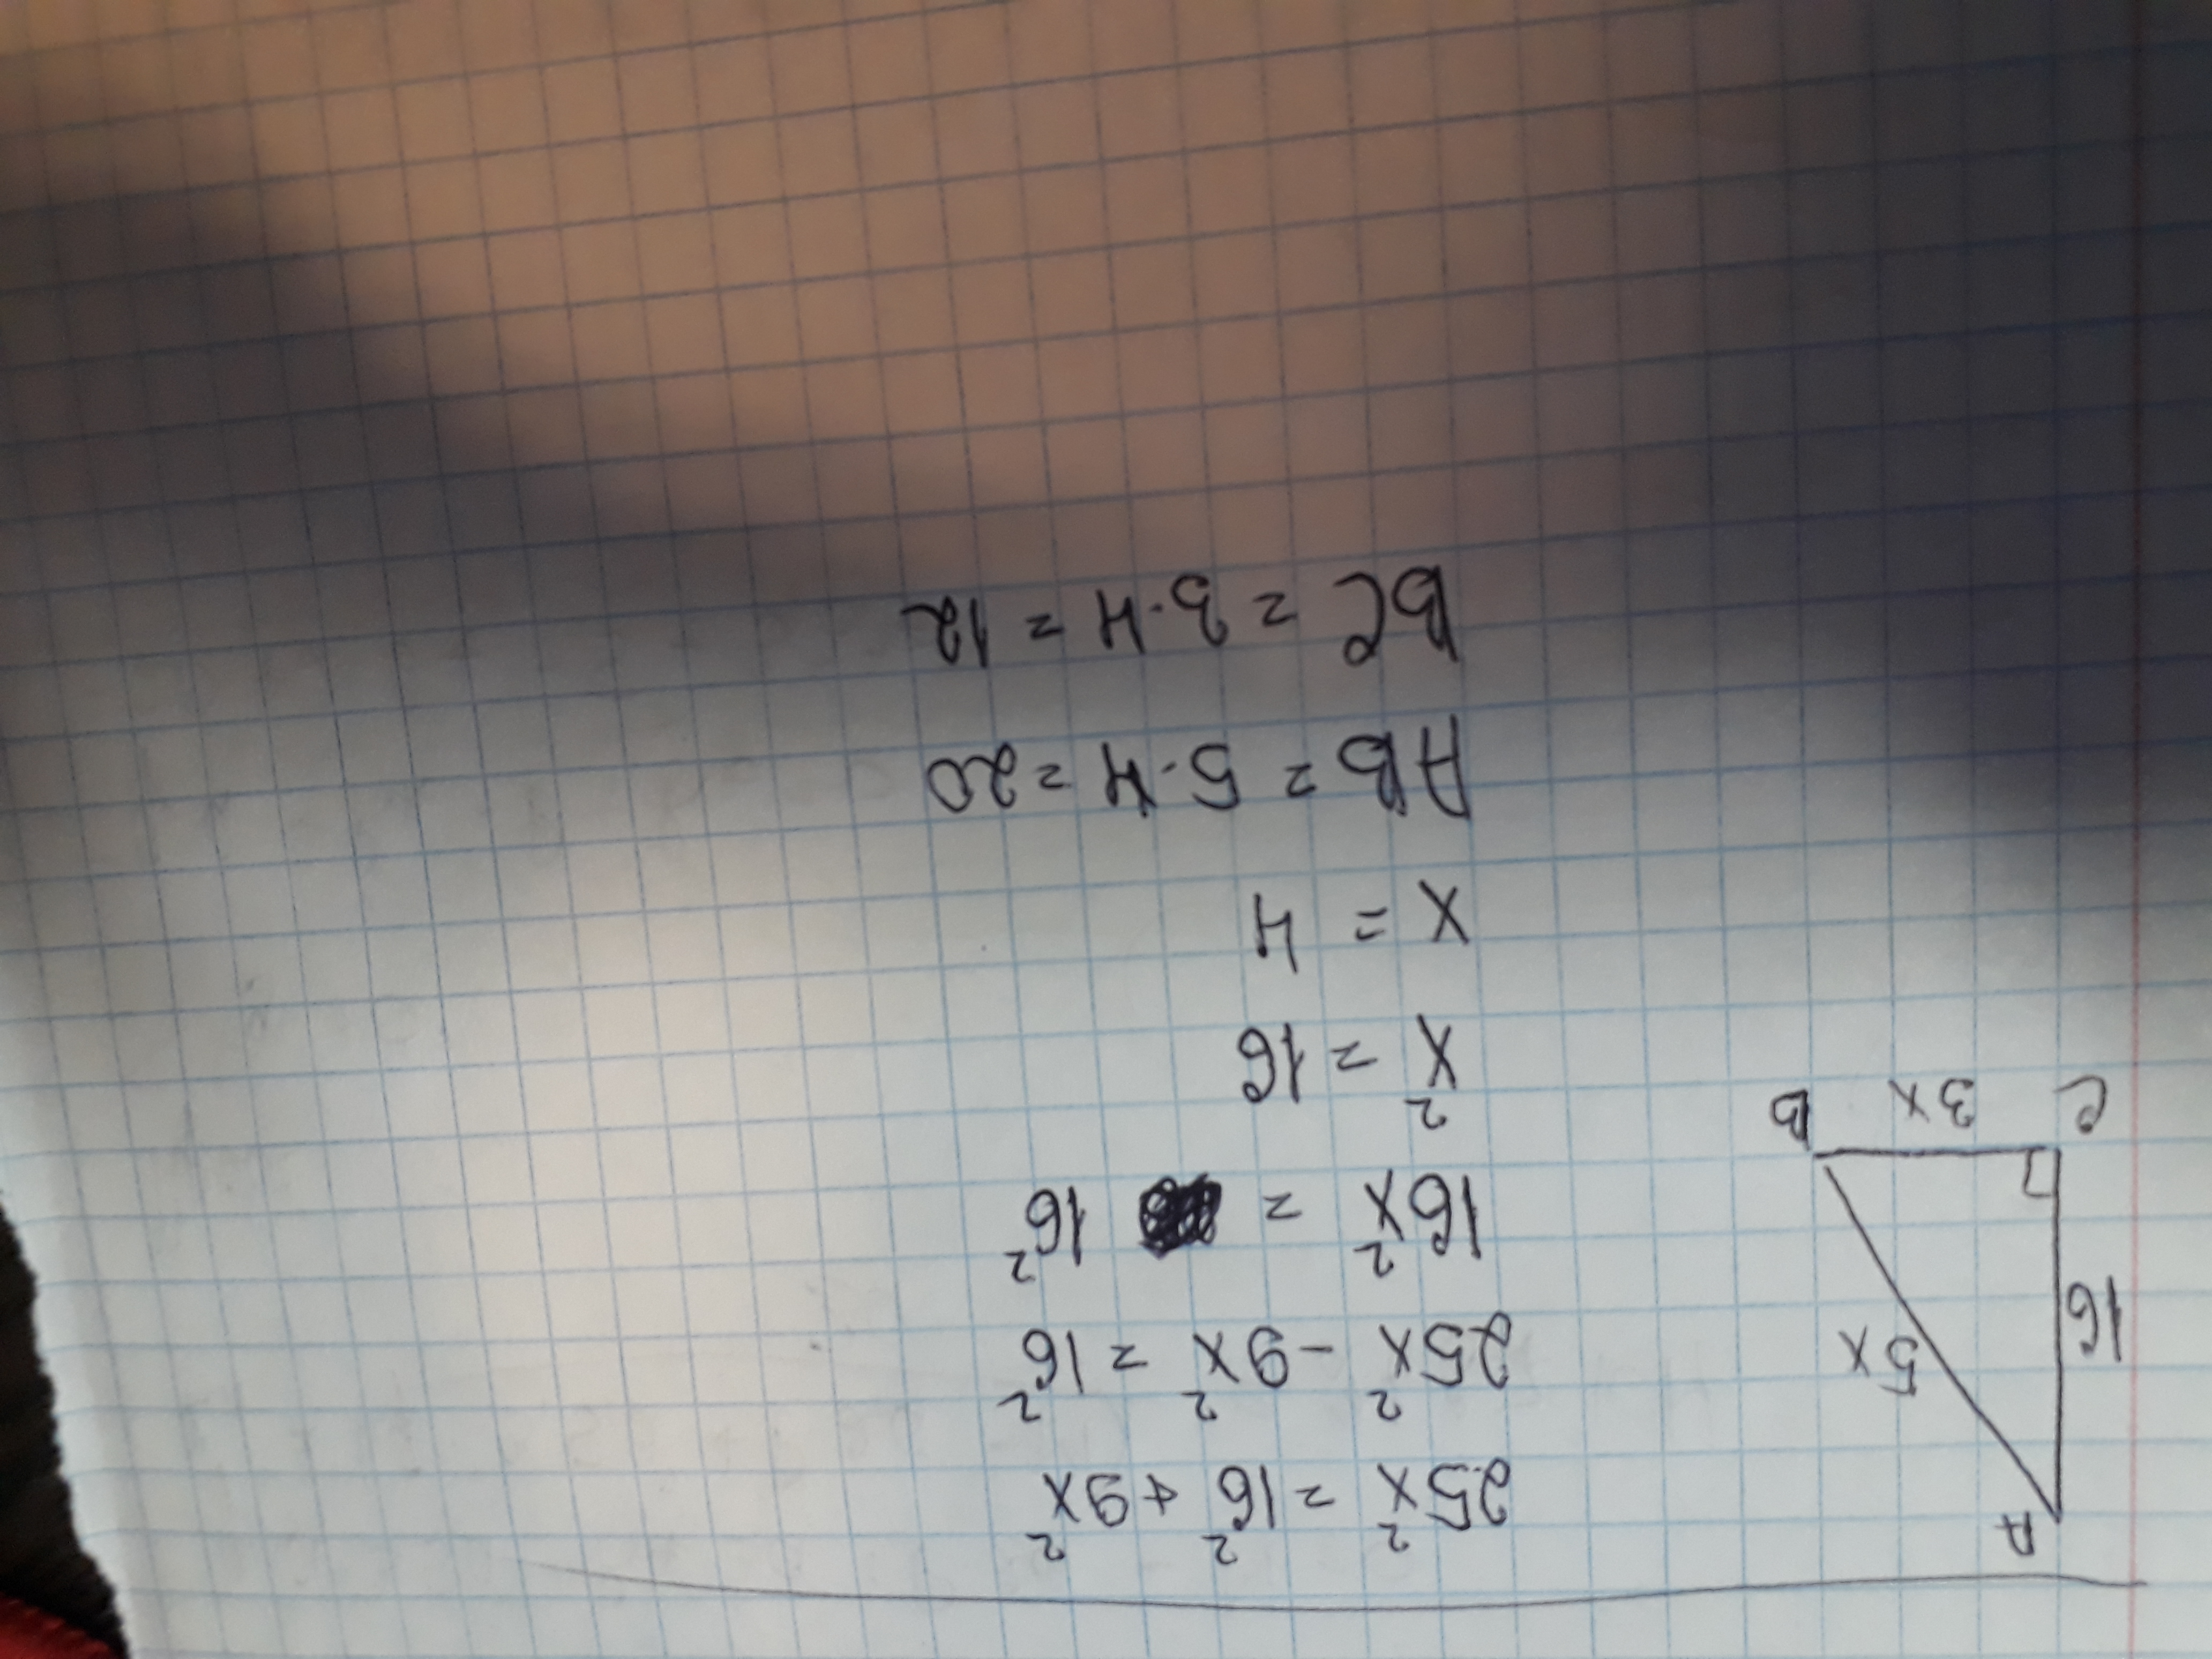 A
16
5x
C 3x B
25x² = 16² + 9x²
25x² - 9x² = 16²
16x² = 16²
x² = 16
x = 4
AB = 5·4 = 20
BC = 3·4 = 12